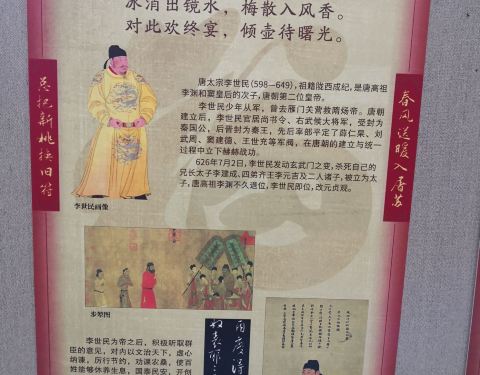 冰消出镜水，梅散入风香。
对此欢终宴，倾壶待曙光。
总把新桃换旧符
春风送暖入屠苏
唐太宗李世民（598—649），祖籍陇西成纪，是唐高祖
李渊和窦皇后的次子，唐朝第二位皇帝。
李世民少年从军，曾去雁门关营救隋炀帝。唐朝
建立后，李世民官居尚书令、右武候大将军，受封为
秦国公，后晋封为秦王，先后率部平定了薛仁杲、刘
武周、窦建德、王世充等军阀，在唐朝的建立与统一
过程中立下赫赫战功。
626年7月2日，李世民发动玄武门之变，杀死自己的
兄长太子李建成、四弟齐王李元吉及二人诸子，被立为太
子，唐高祖李渊不久退位，李世民即位，改元贞观。
李世民画像
步辇图
李世民为帝之后，积极听取群
臣的意见，对内以文治天下，虚心
纳谏，厉行节约，劝课农桑，使百
姓能够休养生息，国泰民安，开创